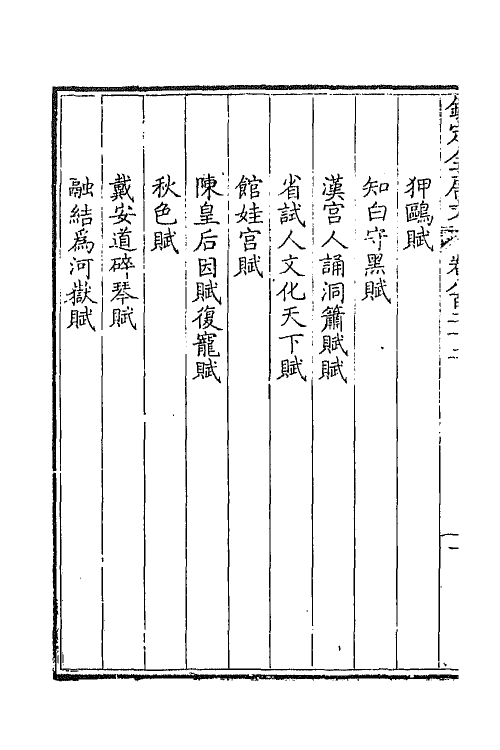 狎鷗賦
知白守黑賦
漢宮人誦洞簫賦賦
省試人文化天下賦
館娃宮賦
陳皇后因賦復寵賦
秋色賦
戴安道碎琴賦
融結爲河嶽賦